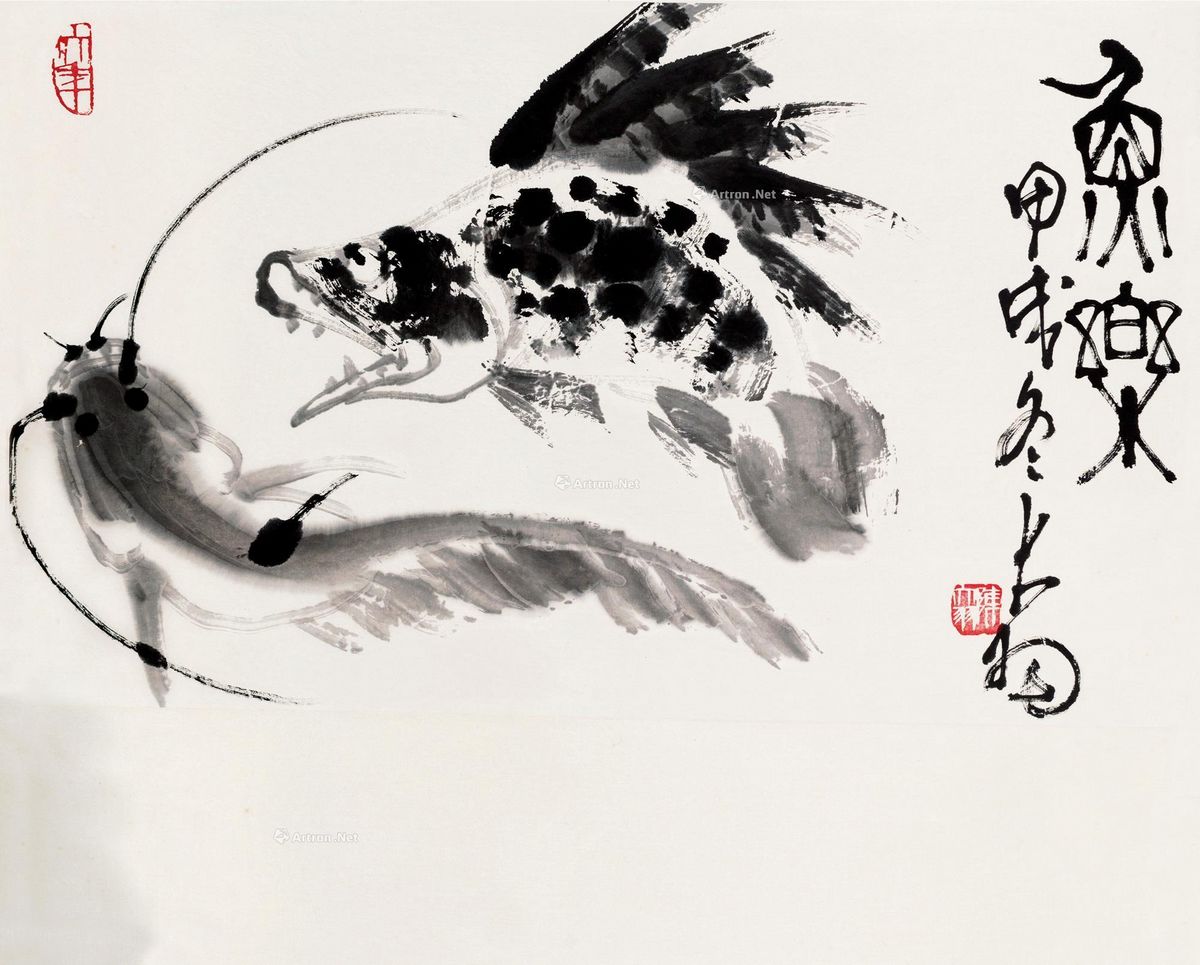 魚樂
甲戌冬大羽
Artron.Net
Artron.Net
Artron.Net